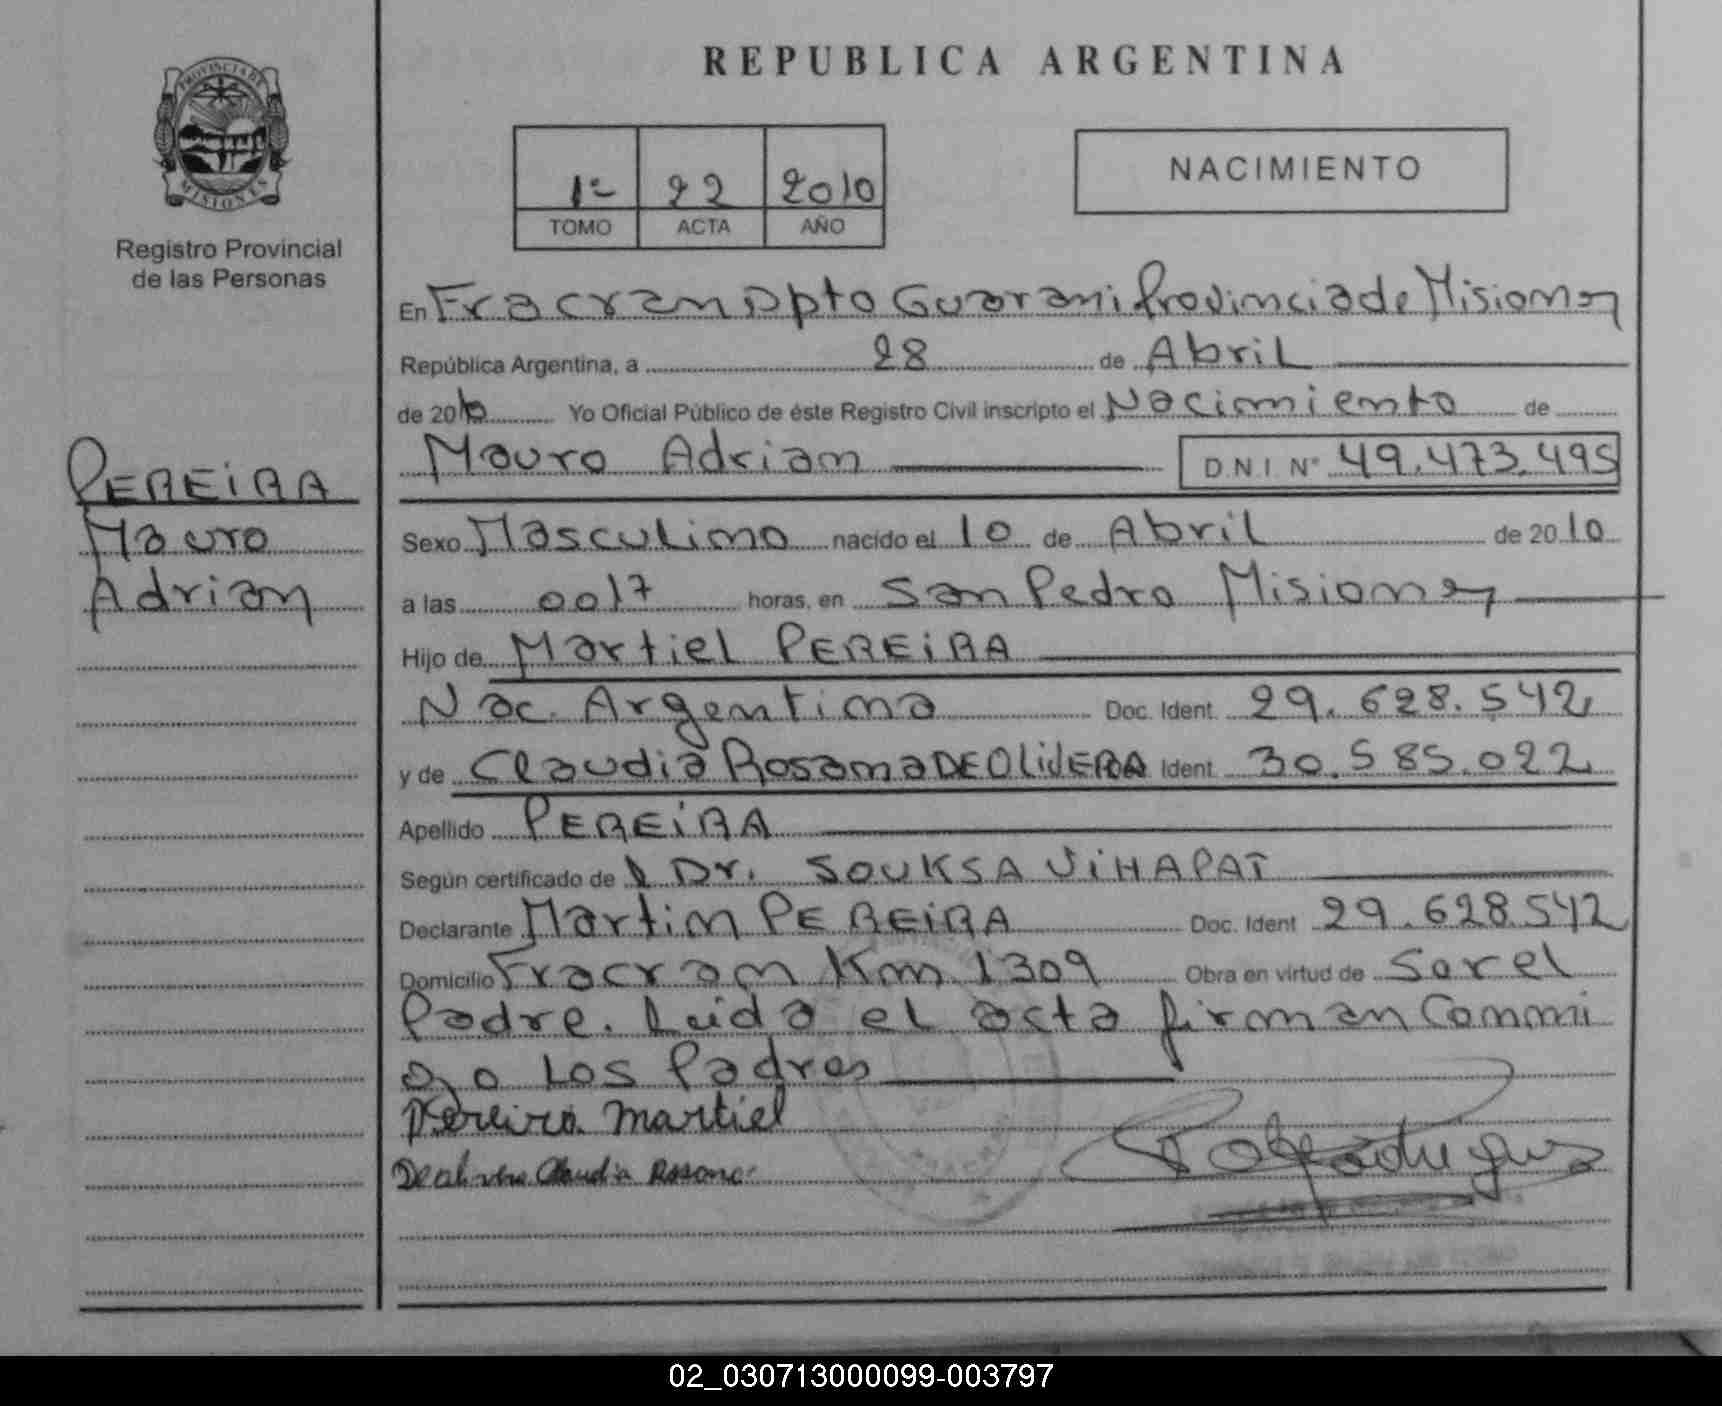 REPUBLICA ARGENTINA
PROVINCIA DE
MISIONES
Registro Provincial
de las Personas
1º 22 2010
TOMO ACTA AÑO
NACIMIENTO
En Fracran Dpto Guarani Provincia de Misiones
República Argentina, a 28 de Abril
de 2010 Yo Oficial Público de éste Registro Civil inscripto el Nacimiento de
Mauro Adrian D.N.I. Nº 49.473.495
PEREIRA
Mauro
Adrian
Sexo Masculino nacido el 10 de Abril de 2010
a las 0017 horas, en San Pedro Misiones
Hijo de Martiel PEREIRA
Nac. Argentina Doc. Ident. 29.628.542
y de Claudia Rosana DE OLIVERA Ident. 30.585.022
Apellido PEREIRA
Según certificado de l Dr. SOUKSAVIHAPAT
Declarante Martin PEREIRA Doc. Ident 29.628.542
Domicilio Fracran Km 1309 Obra en virtud de Ser el
Padre. Leida el acta firman Conmi
go Los Padres
Pereira Martiel
De olivera Claudia Rosana
02_030713000099-003797